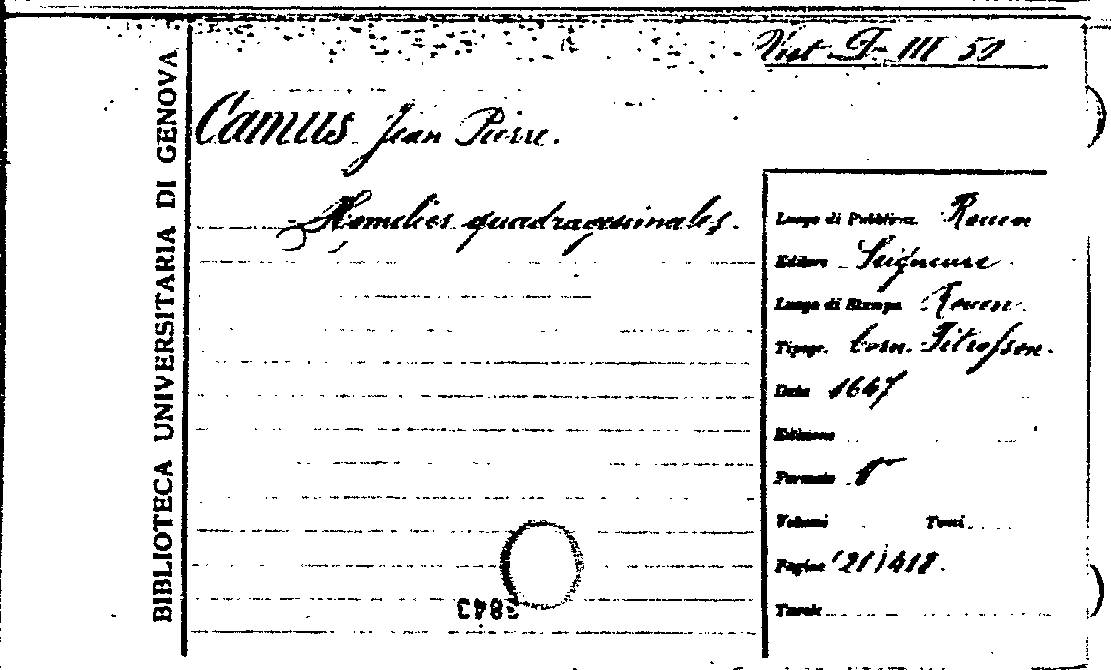 BIBLIOTECA UNIVERSITARIA DI GENOVA
Camus Jean Pierre.
Homelies quadragesimales.
Luogo di Pubblicaz. Rouen
Editore
Luogo di Stampa Rouen.
Tipogr. Corn. Pitresson.
Data 1647
Edizione
Formato 8°
Volumi Tomi
Pagine (21) 418.
Tavole
3843